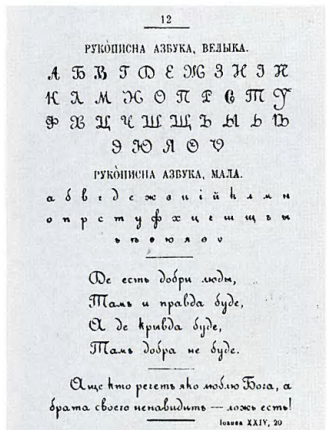 12
РУКОПИСНА АЗБУКА, ВЕЛЫКА.
А Б В Г Д Е Ж З И І Й
К Л М Н О П Р С Т У
Ф Х Ц Ч Ш Щ Ъ Ы Ь Ѣ
Э Ю Я Ѳ Ѵ
РУКОПИСНА АЗБУКА, МАЛА.
а б в г д е ж з и і й к л м н
о п р с т у ф х ц ч ш щ ъ ы
ь ѣ э ю я ѳ ѵ
Де есть добри люды,
Тамъ и правда буде,
А де кривда буде,
Тамъ добра не буде.
Аще кто речеть яко люблю Бога, а
брата своего ненавидить — ложь есть!
Іоанна XXIV, 20